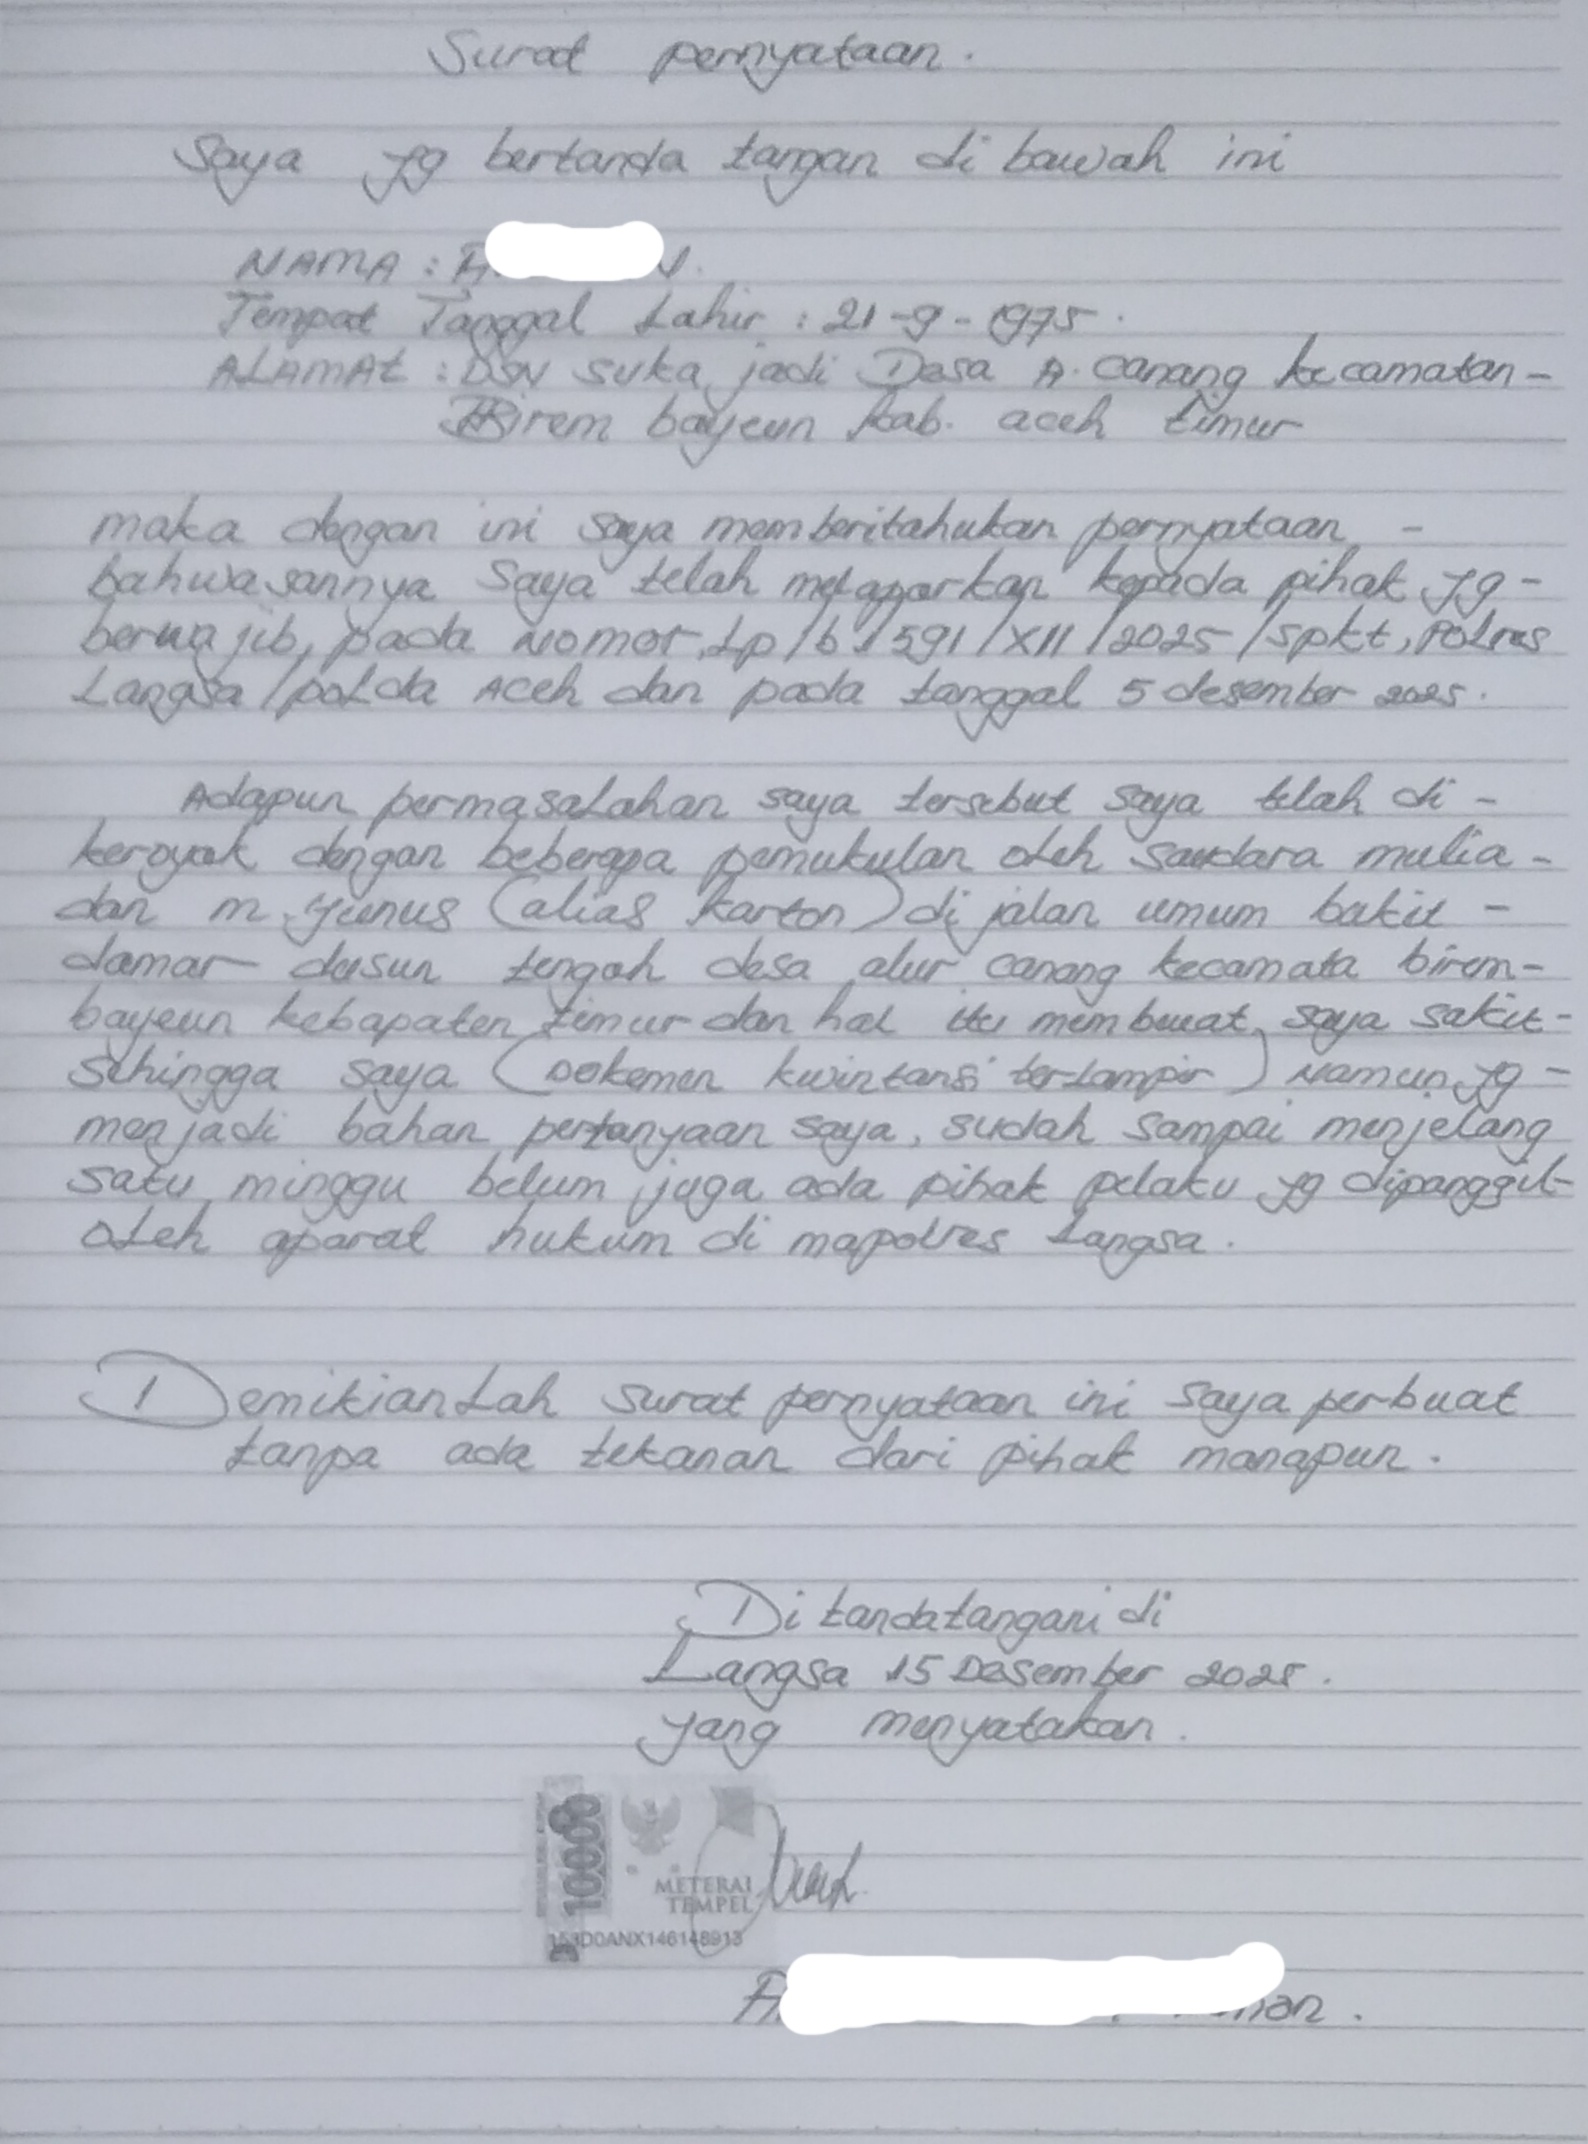 Surat pernyataan.
Saya yg bertanda tangan di bawah ini
NAMA : A
Tempat Tanggal Lahir : 21-9-1975.
ALAMAt : DSN suka jadi Desa A. canang kecamatan -
Birem bayeun kab. aceh timur
maka dengan ini saya memberitahukan pernyataan -
bahwasannya saya telah melaporkan kepada pihak yg -
berwajib, pada Nomor, Lp/b/591/XII/2025/spkt, POLres
Langsa/poLda Aceh dan pada tanggal 5 desember 2025.
Adapun permasaLahan saya tersebut saya telah di -
keroyok dengan beberapa pemukulan oleh saudara mulia -
dan m. yunus (alias karton) di jalan umum bakit -
damar dusun tengah desa alur canang kecamata birem-
bayeun kebapaten timur dan hal itu membuat saya sakit-
sehingga saya (Dokemen kwintansi terlampir) Namun yg -
menjadi bahan pertanyaan saya, sudah sampai menjelang
satu minggu belum juga ada pihak pelaku yg dipanggil-
oleh aparat hukum di mapolres Langsa.
DemikianLah surat pernyataan ini saya perbuat
tanpa ada tekanan dari pihak manapun.
Di tandatangani di
Langsa 15 Desember 2025.
yang menyatakan.
10000
METERAI
TEMPEL
DOANX146148913